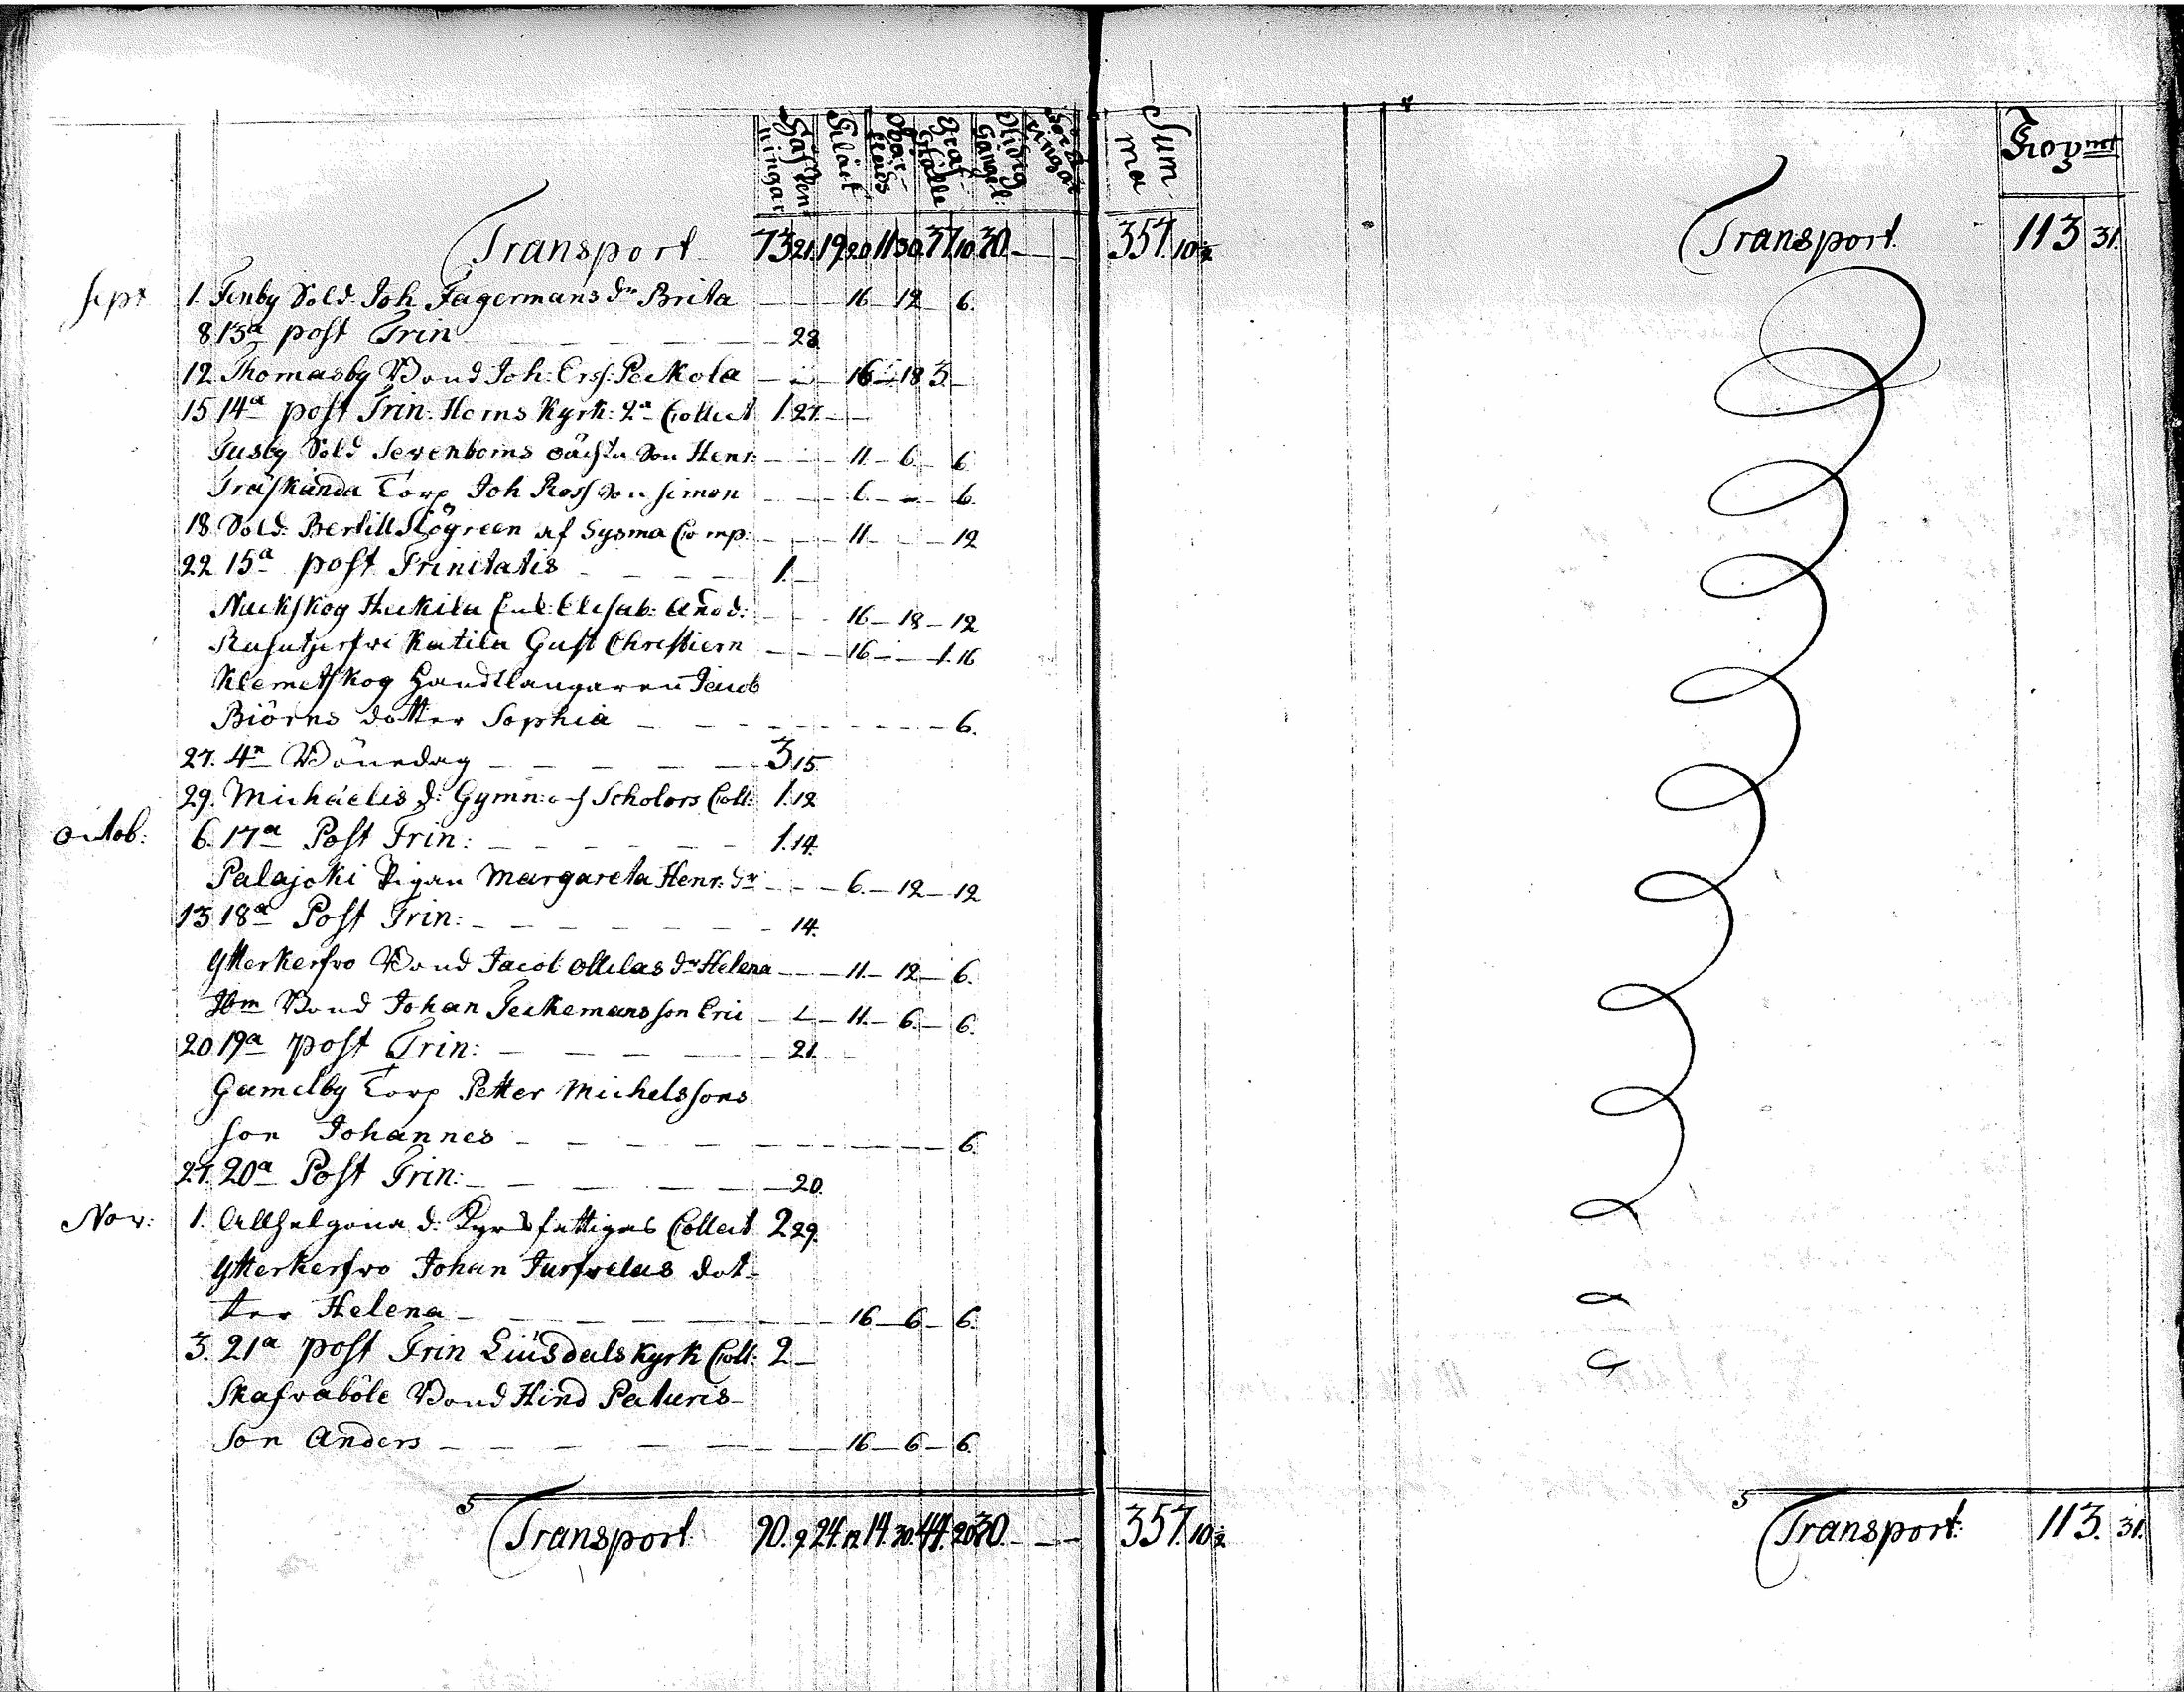 Klockringar
Sum-
ma
Transport 73 21. 19 20 11 30. 37 10 30. — — 357. 10
Sept 1. Tenby Sold. Joh Fagermans dr Brita — — 16 — 12 6.
8 13a post Trin — — — 28.
12 Thomasby Bond Joh: Ers: Peckola — — 16 — 18 3 —
15 14a post Trin: Horns Kyrk: 2a Collect 1. 27. — —
Tusby Sold Sevenboms son Henr: — — 11 — 6 — 6
Träskända Torp Joh Ross son Simon — — 6. — — 6.
18 Sold: Bertill Slögreen af Sysma Comp: — — 11 — — 12
22 15a post Trinitatis — — — 1. —
Nuckskog Huckila Enk: Elisab: And: — — 16 — 18 — 12
Katila Gust Christiern — — 16 — — 1. 16
Klemetskog Handtlangaren Jacob
Biörns dotter Sophia — — — — 6.
27. 4n Bönedag — — — 3 15
29. Michaelis d: Gymn: och Scholors Coll: 1. 12
Octob: 6. 17a Post Trin: — — — 1. 14.
Palajoki Pigan Margareta Henr: dr — — 6. — 12 — 12
13 18a Post Trin: — — — 14.
Ytterkerfvo Bond Jacob Ollilas dr Helena — — 11. — 12 — 6.
Ibm Bond Johan Teckemans son Eric — — 11. — 6. — 6.
20 19a post Trin: — — — 21. — —
Gamelby Torp Petter Michelssons
son Johannes — — — — 6.
27. 20a Post Trin: — — — 20.
Nov: 1. Allhelgona d: fattigas Collect 2 29.
Ytterkerfvo Johan Jursvelas dot-
ter Helena — — — 16 — 6 — 6.
3. 21a post Trin Liusdals Kyrk Coll: 2 —
Skafraböle Bond Hind Paturis
son Anders — — — 16 — 6 — 6.
Transport 90. 9 24. 12 14. 30. 44. 20 30. — — 357. 10
Transport 113 31.
Transport: 113. 31.